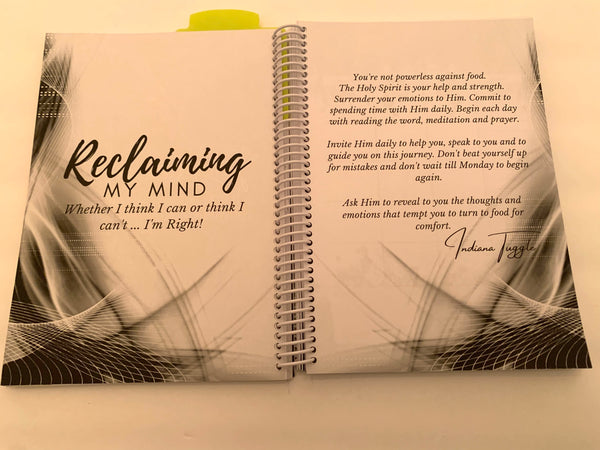 Reclaiming
MY MIND
Whether I think I can or think I
can't ... I'm Right!
You're not powerless against food.
The Holy Spirit is your help and strength.
Surrender your emotions to Him. Commit to
spending time with Him daily. Begin each day
with reading the word, meditation and prayer.
Invite Him daily to help you, speak to you and to
guide you on this journey. Don't beat yourself up
for mistakes and don't wait till Monday to begin
again.
Ask Him to reveal to you the thoughts and
emotions that tempt you to turn to food for
comfort.
Indiana Tuggle